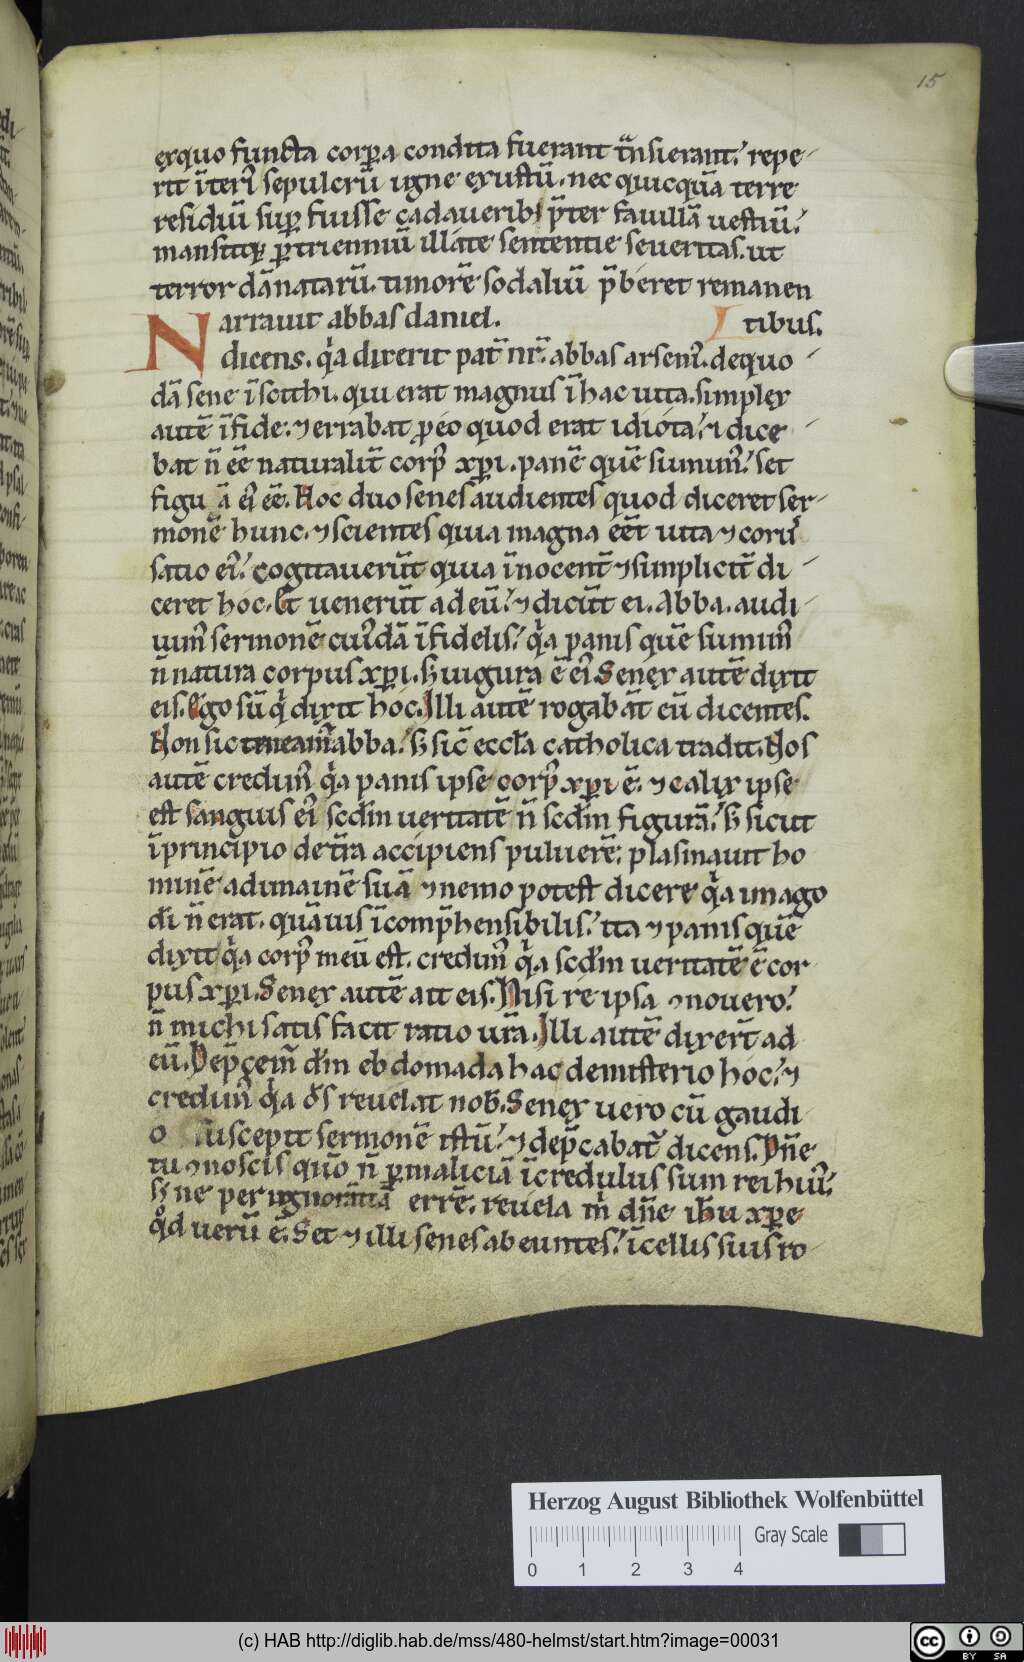 15
exquo functa corꝑa condita fuerant t̃nsierant. repe-
rit ĩteri᾽ sepulcrũ igne exustũ. nec quicquã terre
residuũ suꝑ fuisse cadaverib; p̃ter fauillã uestiũ.
mansitq; ꝑtrienniũ illate sententie seueritas. ut
terror dãnatarũ. timorẽ sodaliũ p̃beret remanen
Narrauit abbas daniel. tibus.
dicens. q̇a dixerit pat̃ nr̃. abbas arseni᾽. dequo-
dã sene ĩ scithi. qui erat magnus ĩ hac uita. simplex
autẽ ĩ fide. ⁊ errabat ꝓeo quod erat idiota. ⁊ dice-
bat ñ eẽ naturalit̃ corp᾽ xp̃i. panẽ quẽ sumim᾽. set
figu ã ei᾽ eẽ. Hoc duo senes audientes quod diceret ser-
monẽ hunc. ⁊ scientes quia magna eẽt uita ⁊ cõuer
satio ei᾽. cogitauerũt quia ĩnocent̃ ⁊ simplicit̃ di-
ceret hoc. Et uenerũt ad eũ. ⁊ dicũt ei. Abba. audi-
uim᾽ sermonẽ cui᾽dã ĩfidelis. q̇a panis quẽ sumim᾽
ñ natura corpus xp̃i. s; uigura ẽ ei᾽. Senex autẽ dixit
eis. Ego sũ q̇ dixit hoc. Illi autẽ rogabãt eũ dicentes.
Non sic teneam᾽ abba. s; sic᾽ eccl̃a catholica tradit. Nos
autẽ credim᾽ q̇a panis ipse corp᾽ xp̃i ẽ. ⁊ calix ipse
est sanguis ei᾽ scd̃m ueritatẽ ñ scd̃m figurã. s; sicut
ĩ principio de t̃ra accipiens puluerẽ. plasmauit ho
minẽ ad imainẽ suã ⁊ nemo potest dicere q̇a imago
dĩ ñ erat. quãuis ĩcomp̃hensibilis. ita ⁊ panis quẽ
dixit q̇a corp᾽ meũ est. credim᾽ q̇a scd̃m ueritatẽ ẽ cor
pus xp̃i. Senex autẽ ait eis. Nisi re ipsa ꝯnouero.
ñ michi satis facit ratio ur̃a. Illi autẽ dixer̃t ad
eũ. Dep̃cem᾽ dm̃ ebdomada hac demisterio hoc. ⁊
credim᾽ q̇a ds̃ reuelat nob̃. Senex uero cũ gaudi-
o suscepit sermonẽ istũ. ⁊ dep̃cabat᾽ dicens. Dñe
tu ꝯnoscis quo᾽ ñ ꝑ maliciã ĩcredulus sum rei hui᾽.
s; ne per ignorãtiã errẽ. reuela m̃ dñe ih̃u xp̃e
q̊d uerũ ẽ. Set ⁊ illi senes abeuntes. ĩ cellis suis ro-
Herzog August Bibliothek Wolfenbüttel
Gray Scale
0 1 2 3 4
(c) HAB http://diglib.hab.de/mss/480-helmst/start.htm?image=00031
cc BY SA